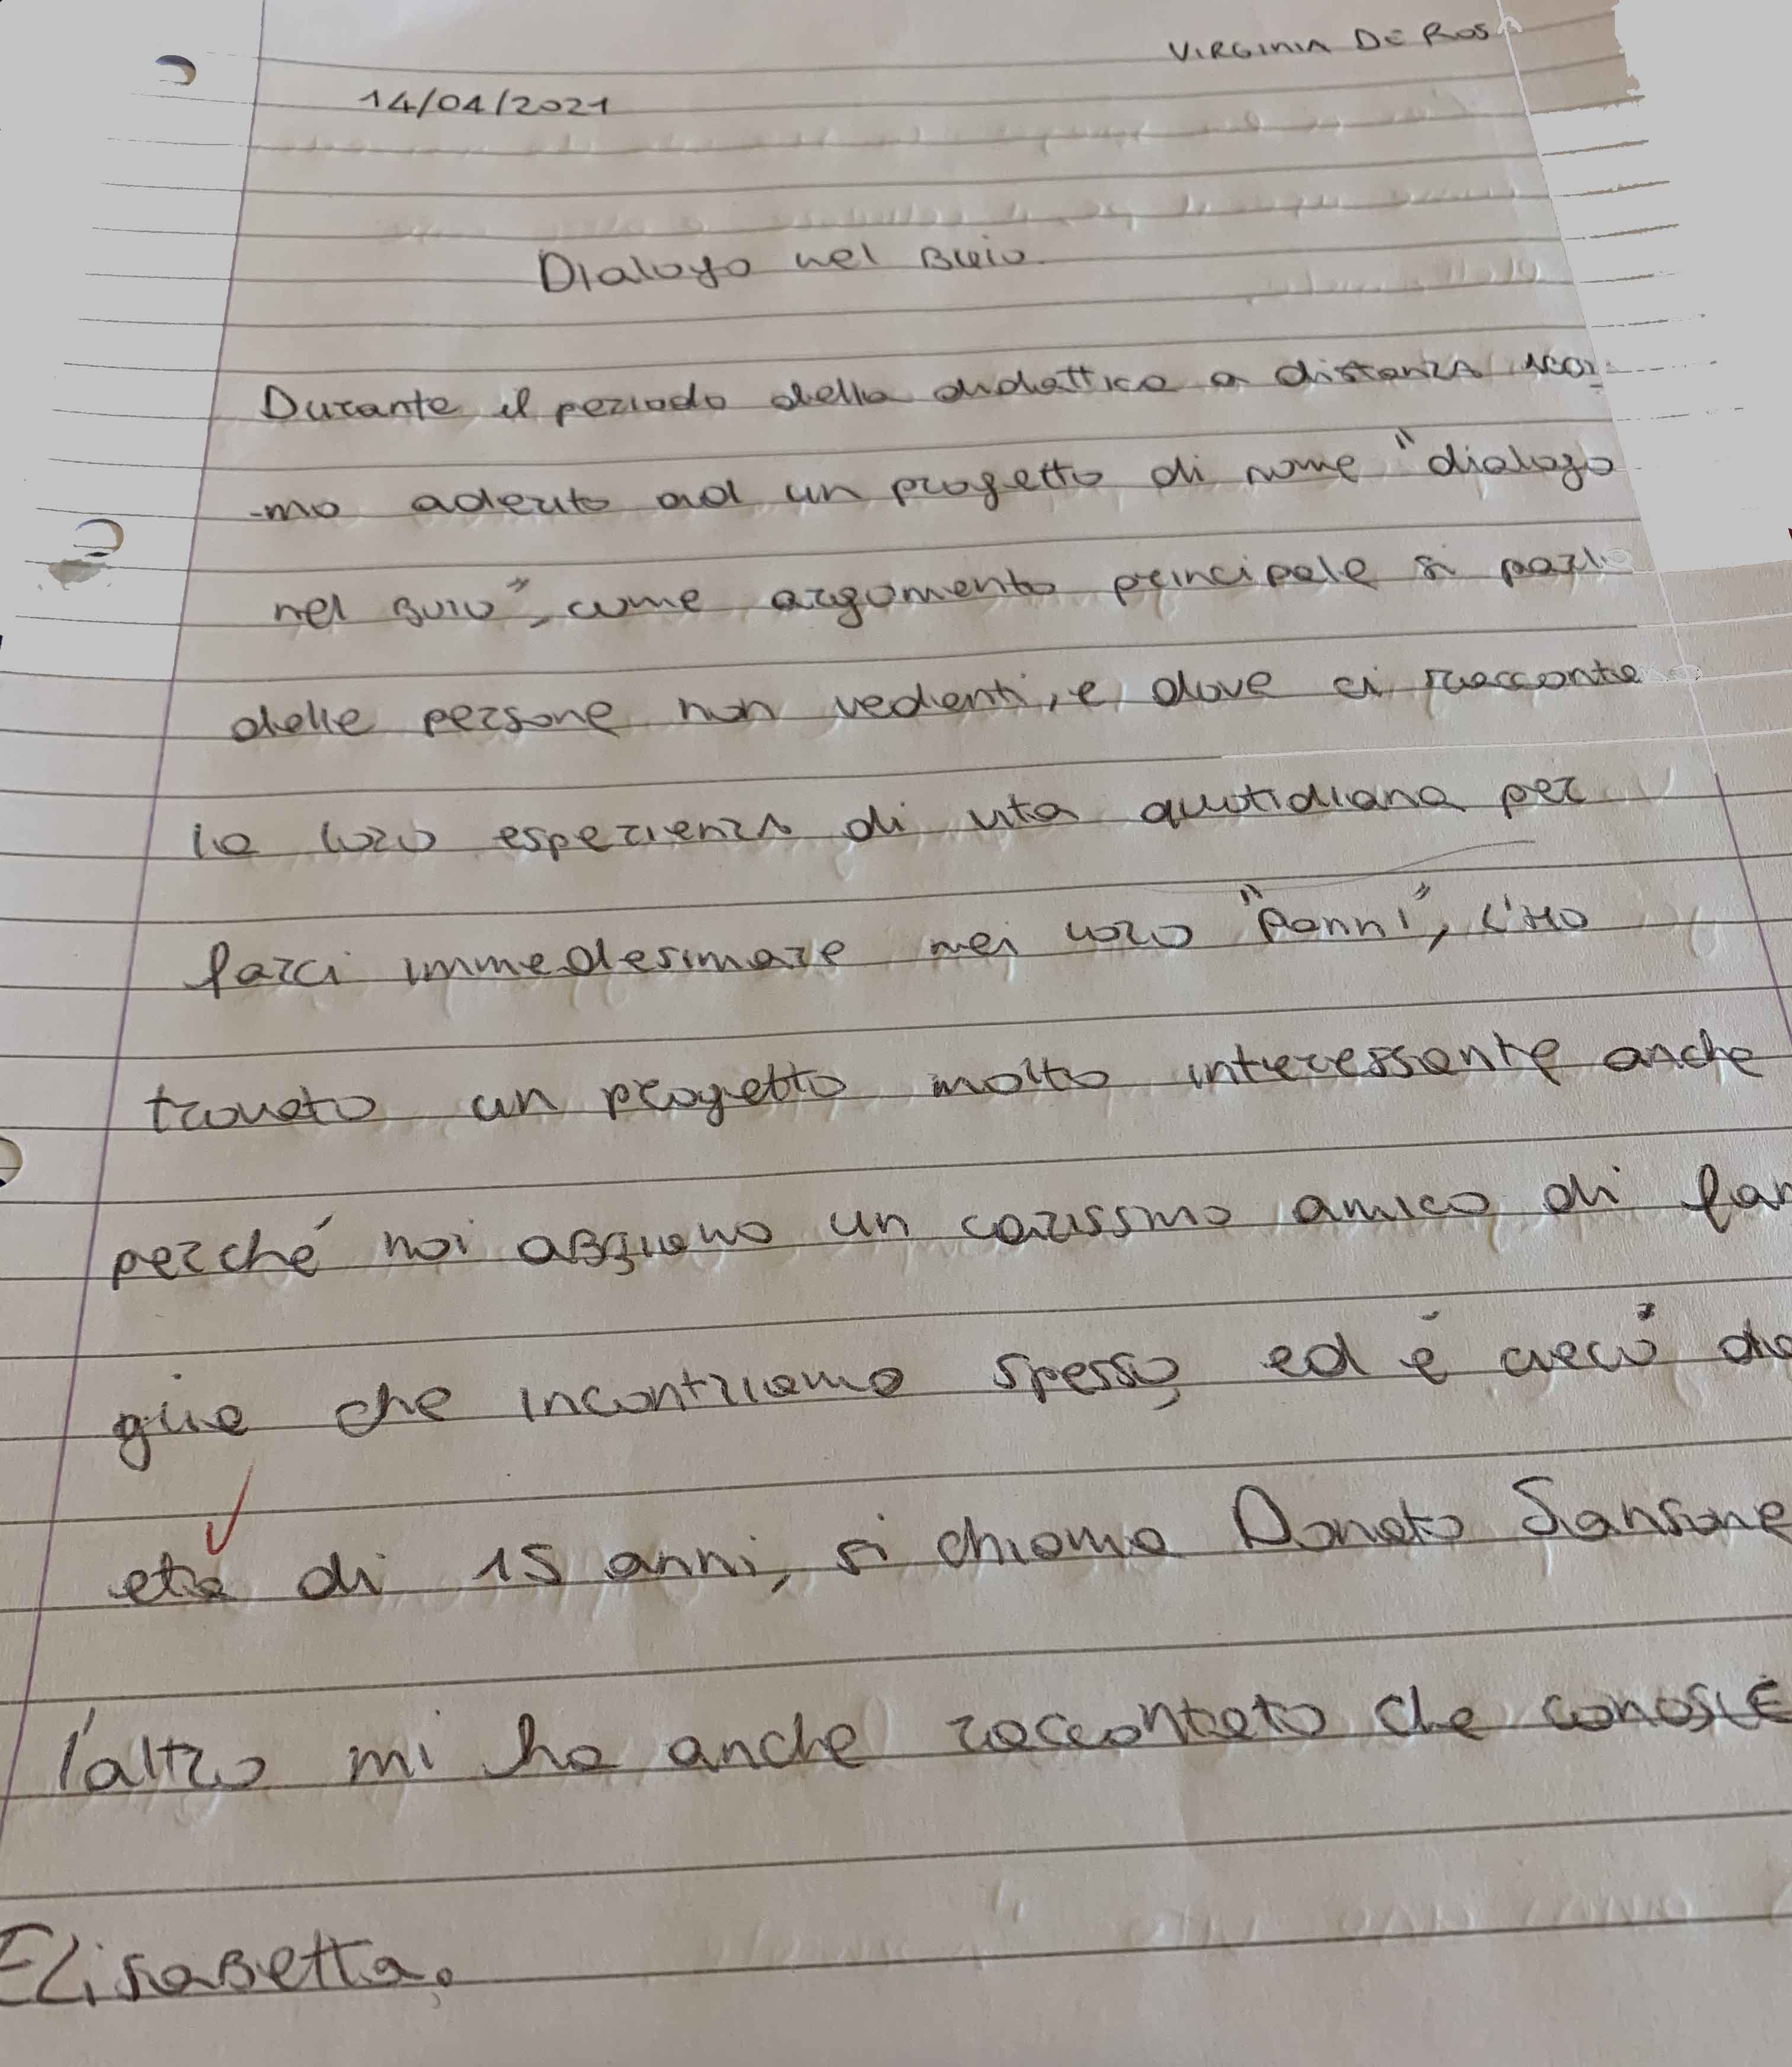 VIRGINIA DE ROSA
14/04/2021
Dialogo nel Buio
Durante il periodo della didattica a distanza
-mo aderito ad un progetto di nome "dialogo
nel Buio", come argomento principale si parla
delle persone non vedenti, e dove ci
la loro esperienza di vita quotidiana per
farci immedesimare nei loro "panni", l'Ho
trovato un progetto molto interessante anche
perché noi abbiamo un carissmo amico di
glia che incontriamo spesso, ed é
età di 15 anni, si chiama Donato Sansone
l'altro mi ha anche raccontato che conosce
Elisabetta.